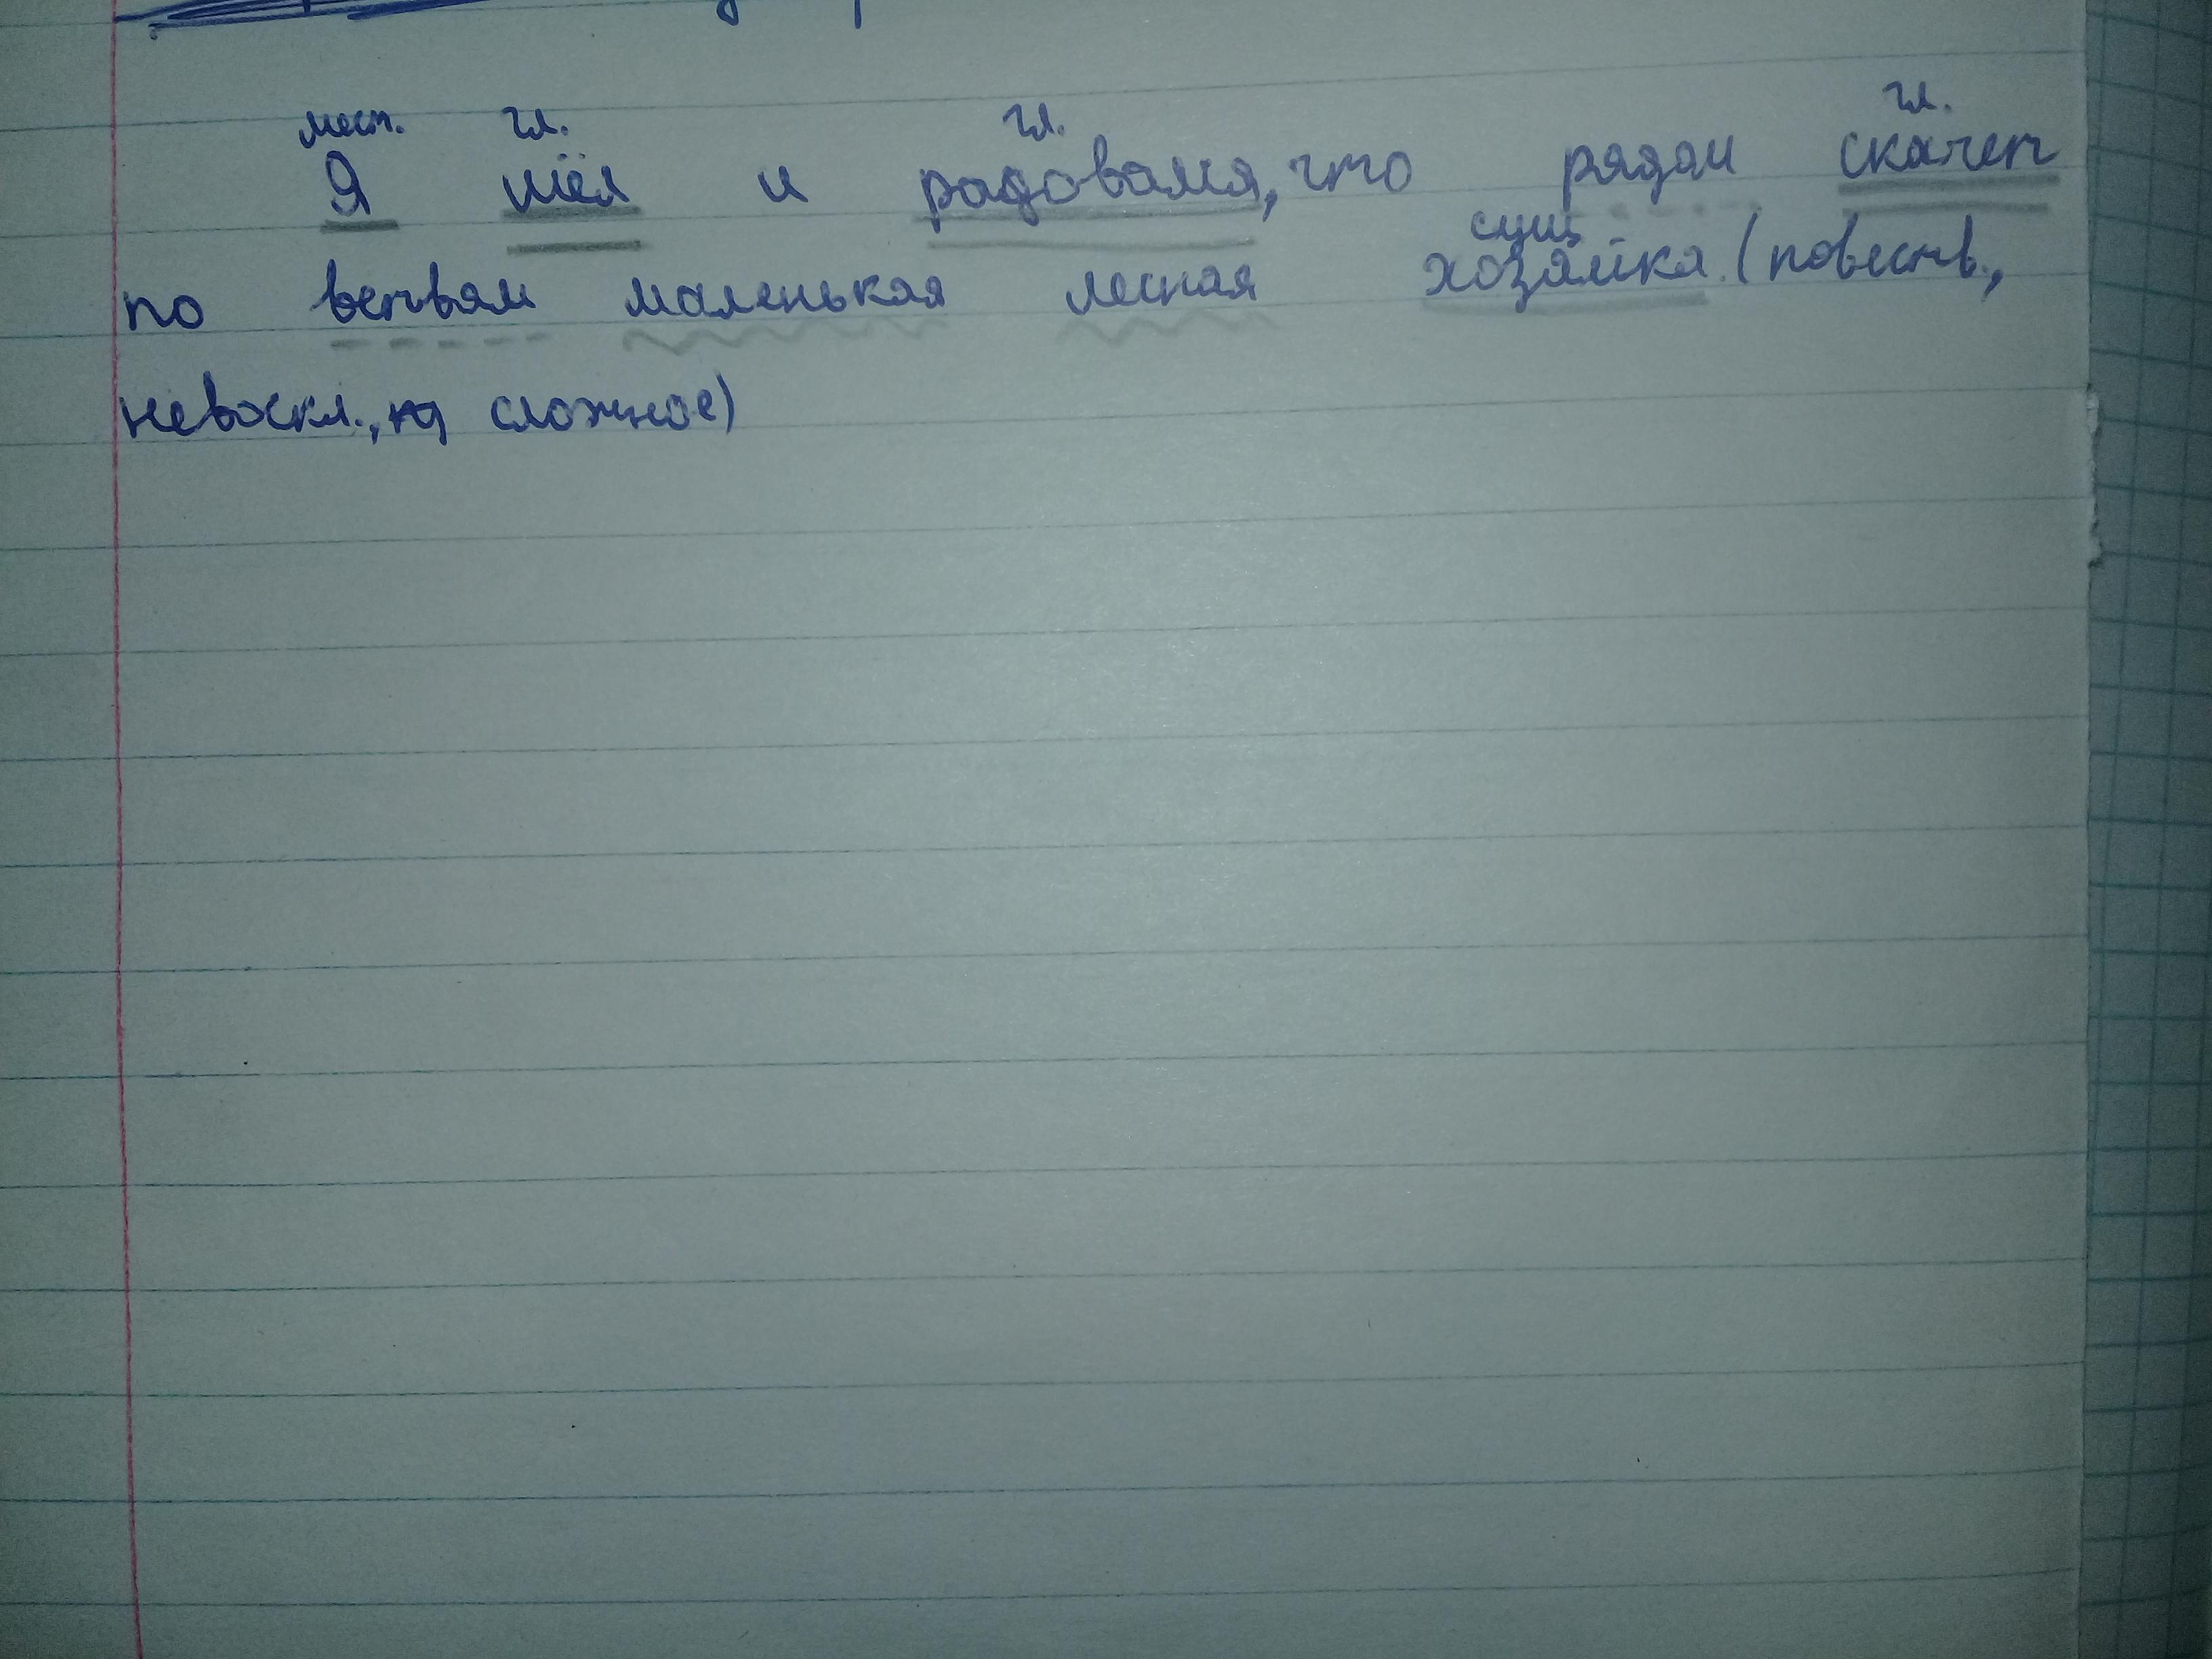 мест. гл. гл. гл.
Я шёл и радовался, что рядом скачет
сущ
по ветвям маленькая лесная хозяйка. (повеств.,
невоскл., сложное)